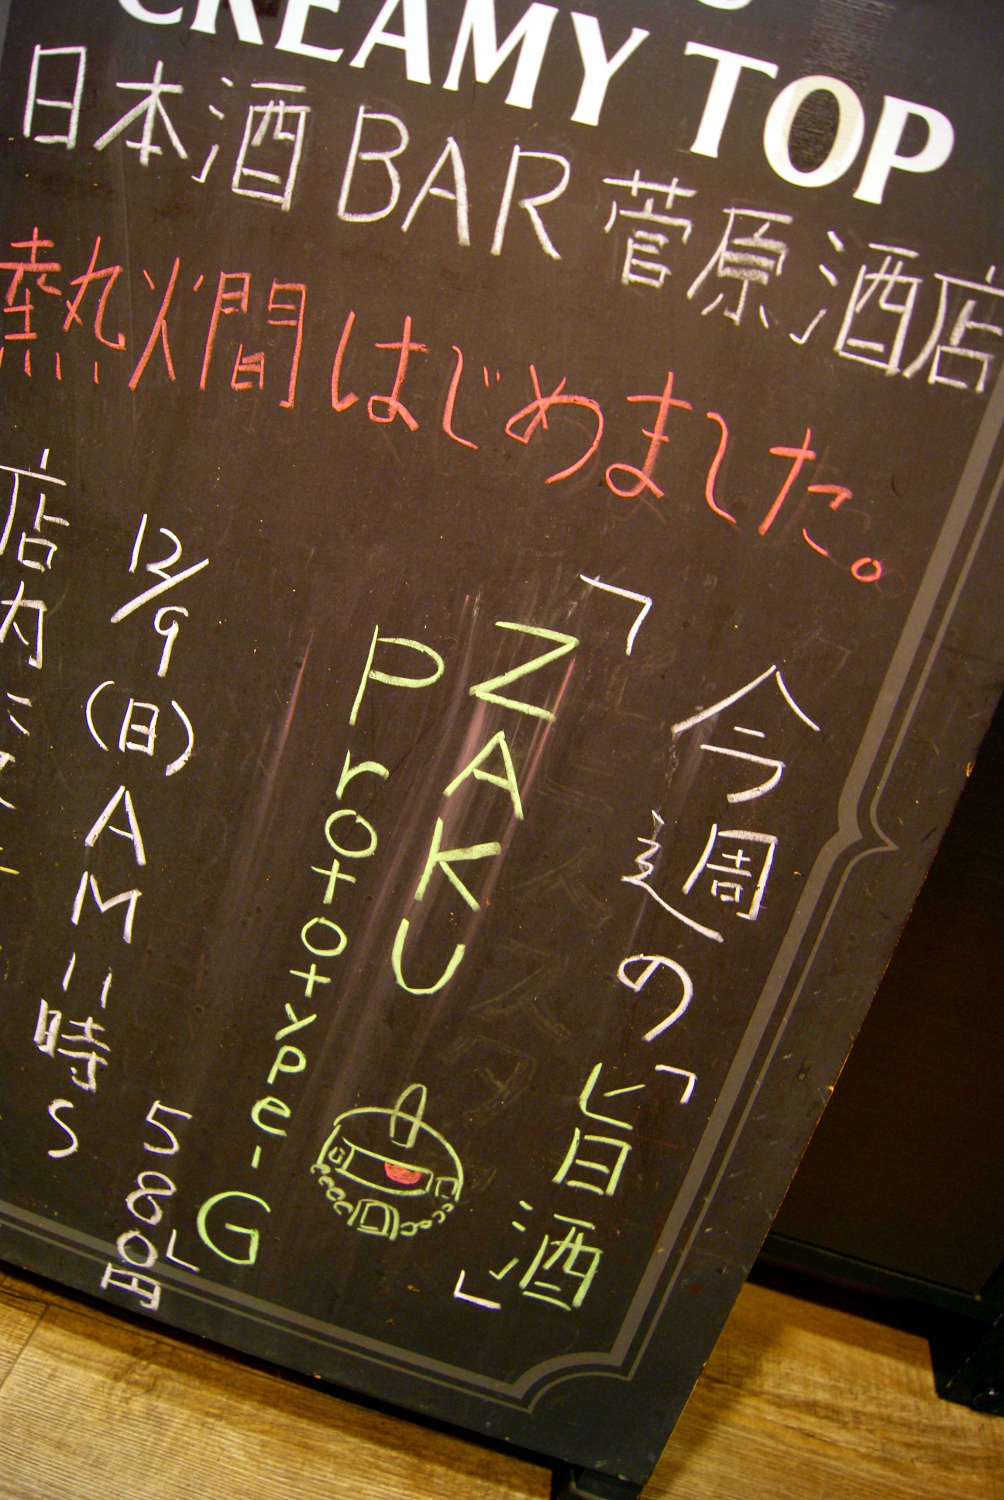 CREAMY TOP
日本酒BAR 菅原酒店
熱燗はじめました。
今週の「旨酒」
「ZAKU
Prototype-G」
580円
12/9(日)AM11時~
店内